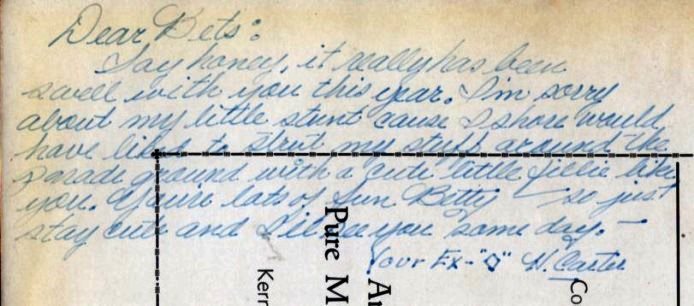 Dear Bets:
Say honey, it really has been
swell with you this year. I'm sorry
about my little stunt cause I shore would
have liked to strut my stuff around the
parade ground with a cute little fillie like
you. You're lots of fun Betty — so just
stay cute and I'll see you some day. —
Your Ex-"O" W. Carter
Pure M
Ar
Kerr
Co